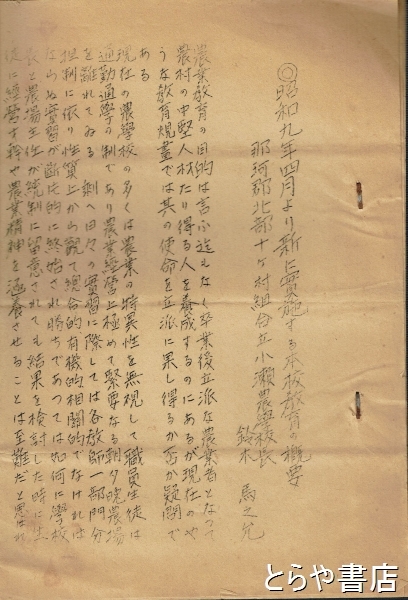 ◎昭和九年四月より新に実施する本校教育の概要
那珂郡北部十ヶ村組合立小瀬農学校長
鈴木 馬之允
農業教育の目的は言ふ迄もなく卒業後立派な農業者となつて
農村の中堅人材たり得る人を養成するのにあるが現在のや
うな教育規畫では其の使命を立派に果し得るか否か疑問で
ある
現在の農学校の多くは農業の特異性を無視して職員生徒は
通勤通学の制であり農業経営上極めて緊要なる朝夕晩農場
を離れてゐる 剰へ日々の実習に際しては各教師一部門分
担制に依り性質上から観て綜合的有機的相関的でなければ
ならぬ実習が断片的に終始され勝ちであつては如何に学校
長と農場主任が統制に留意されても結果を検討した時に生
徒に経営す 農業精神を涵養させることは至難だと思はれ
とらや書店